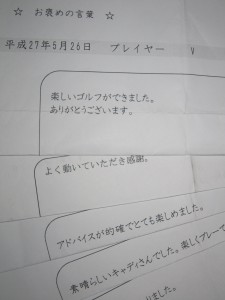 ☆ お褒めの言葉 ☆
平成27年5月26日 プレイヤー V
楽しいゴルフができました。
ありがとうございます。
よく動いていただき感謝。
アドバイスが的確でとても楽しめました。
素晴らしいキャディさんでした。楽しくプレーで
りました。